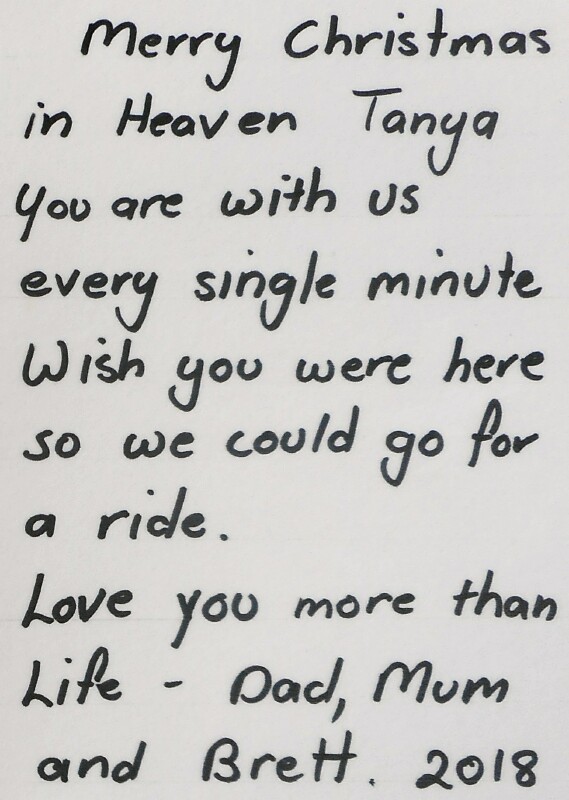 Merry Christmas
in Heaven Tanya
You are with us
every single minute
Wish you were here
so we could go for
a ride.
Love you more than
Life - Dad, Mum
and Brett. 2018